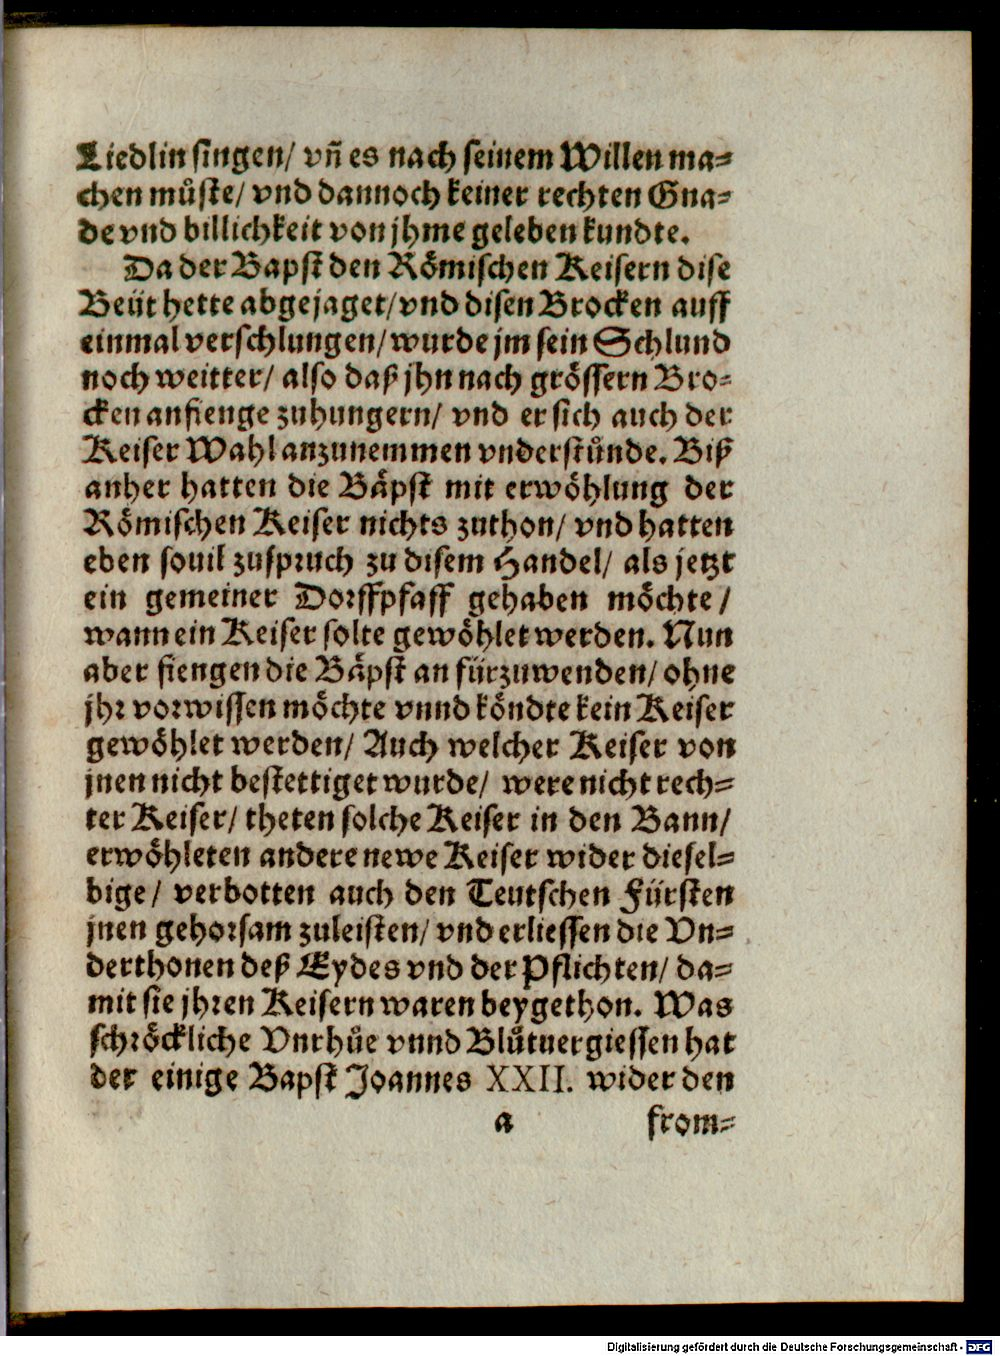 Liedlin singen/ vn̄ es nach seinem Willen ma⸗
chen můste/ vnd dannoch keiner rechten Gna⸗
de vnd billichkeit von jhme geleben kundte.
Da der Bapst den Römischen Keisern dise
Beüt hette abgejaget/ vnd disen Brocken auff
einmal verschlungen/ wurde jm sein Schlund
noch weitter/ also daß jhn nach grössern Bro⸗
cken anfienge zuhungern/ vnd er sich auch der
Keiser Wahl anzunemmen vnderstůnde. Biß
anher hatten die Bäpst mit erwöhlung der
Römischen Keiser nichts zuthon/ vnd hatten
eben souil zuspruch zu disem Handel/ als jetzt
ein gemeiner Dorffpfaff gehaben möchte/
wann ein Keiser solte gewöhlet werden. Nun
aber fiengen die Bäpst an fürzuwenden/ ohne
jhr vorwissen möchte vnnd köndte kein Keiser
gewöhlet werden/ Auch welcher Keiser von
jnen nicht bestettiget wurde/ were nicht rech⸗
ter Keiser/ theten solche Keiser in den Bann/
erwöhleten andere newe Keiser wider diesel⸗
bige/ verbotten auch den Teutschen Fürsten
jnen gehorsam zuleisten/ vnd erliessen die Vn⸗
derthonen deß Eydes vnd der Pflichten/ da⸗
mit sie jhren Keisern waren beygethon. Was
schröckliche Vnrhůe vnnd Blůtuergiessen hat
der einige Bapst Joannes XXII. wider den
a from⸗
Digitalisierung gefördert durch die Deutsche Forschungsgemeinschaft - DFG